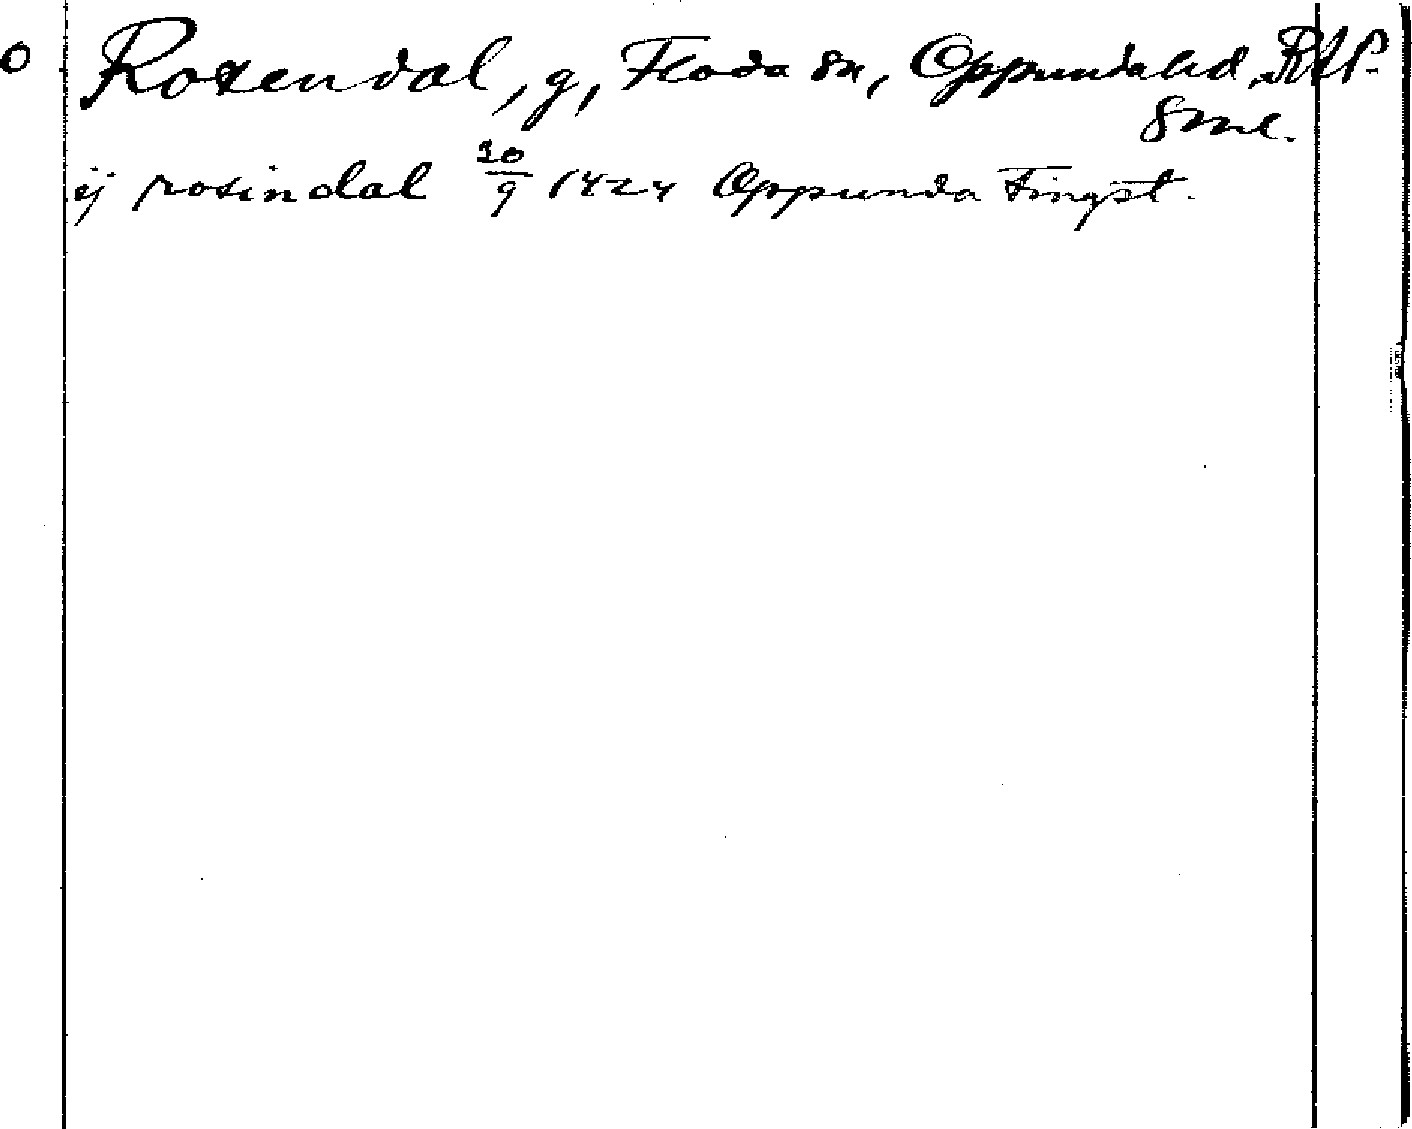 o Rosendal, g, Floda sn, Oppunda hd, RAP.
Sml.
ij rosindal 10/9 1424 Oppunda Tingst.